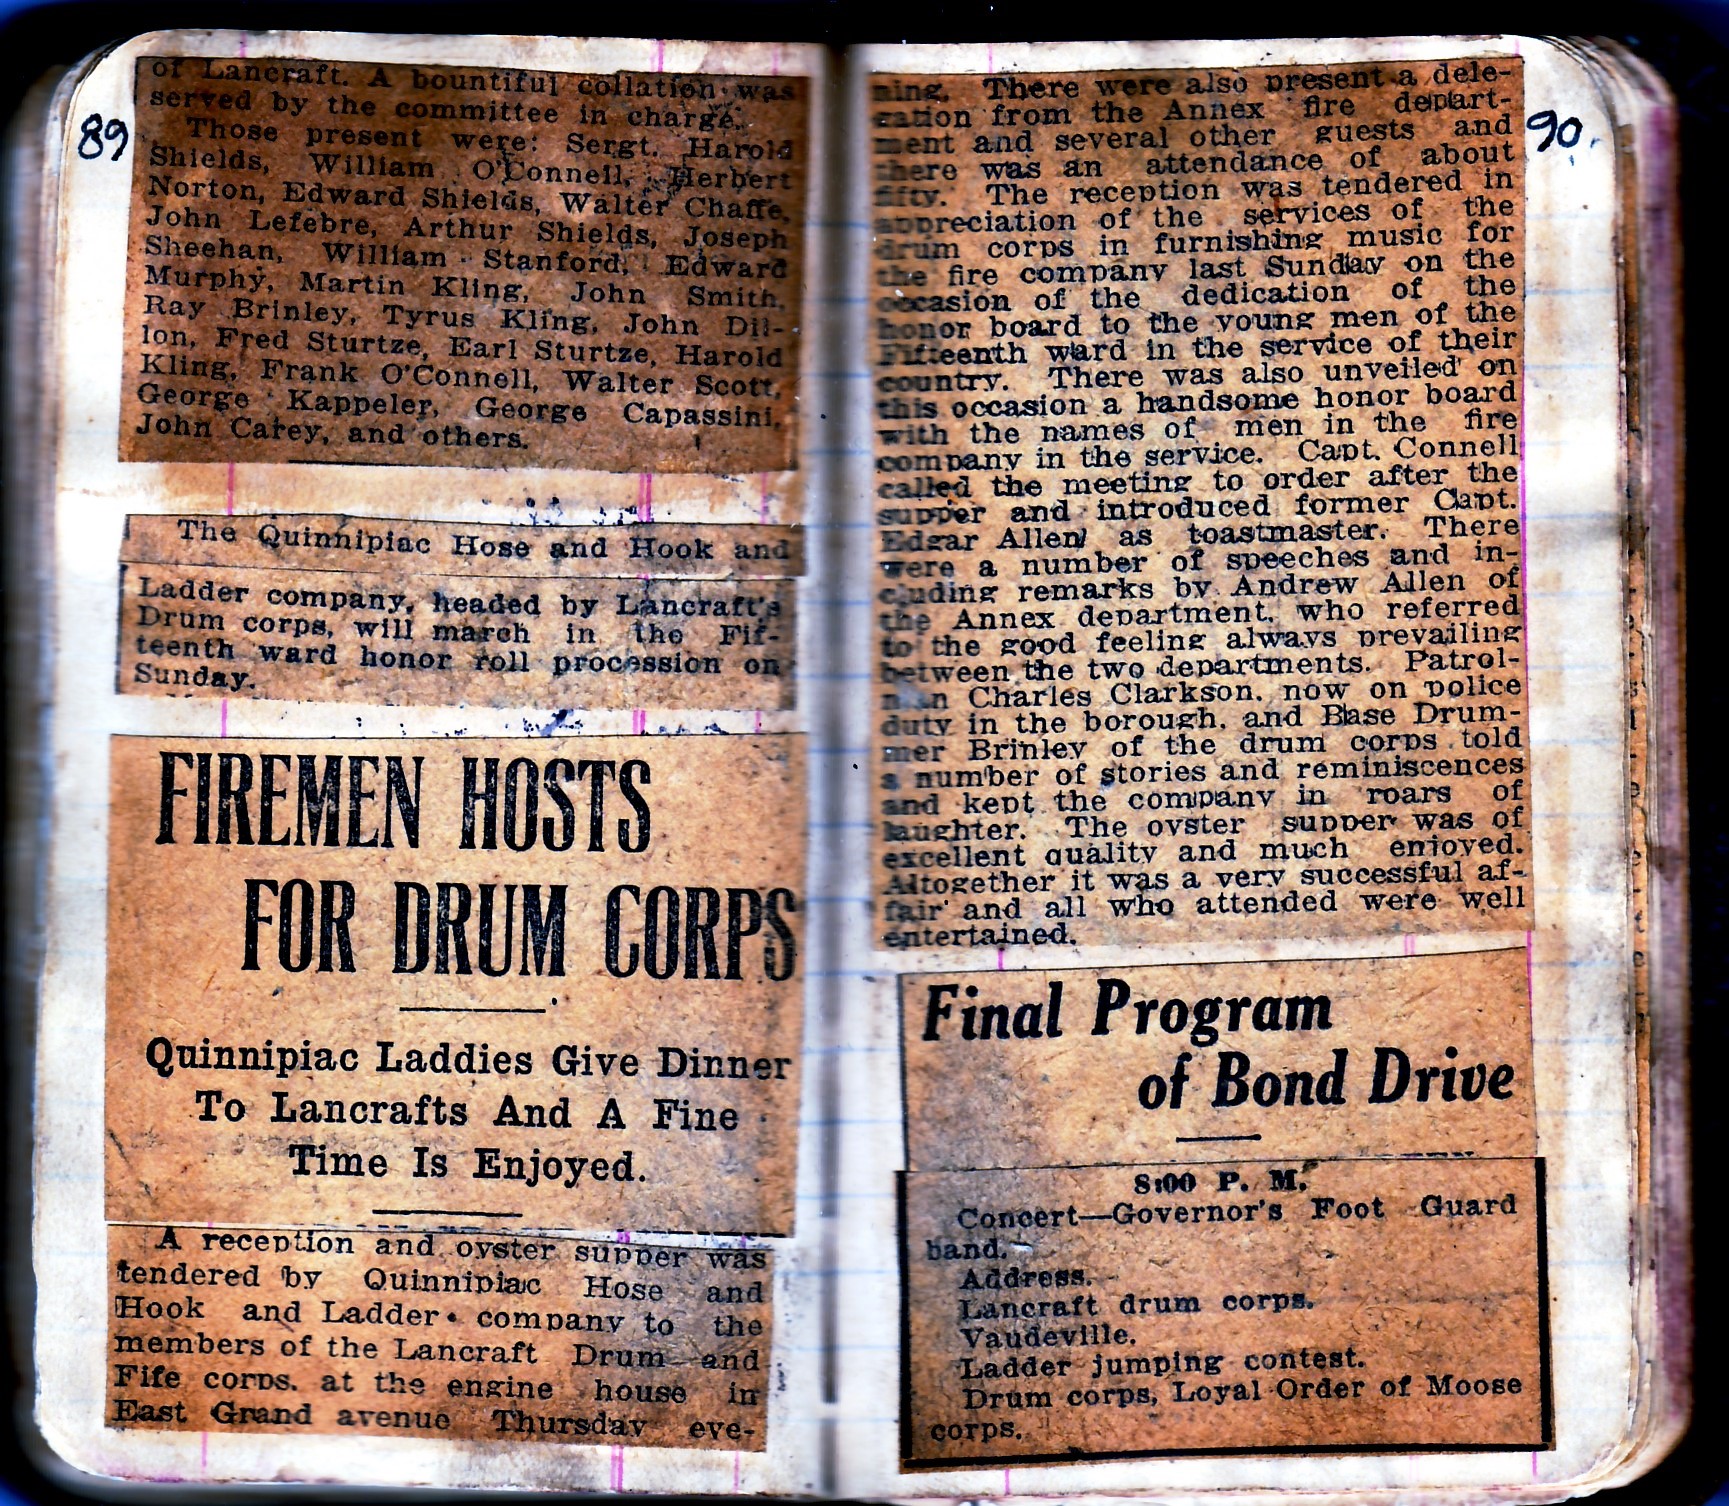 89
of Lancraft. A bountiful collation was
served by the committee in charge.
Those present were: Sergt. Harold
Shields, William O'Connell, Herbert
Norton, Edward Shields, Walter Chaffe,
John Lefebre, Arthur Shields, Joseph
Sheehan, William Stanford, Edward
Murphy, Martin Kling, John Smith,
Ray Brinley, Tyrus Kling, John Dil-
lon, Fred Sturtze, Earl Sturtze, Harold
Kling, Frank O'Connell, Walter Scott,
George Kappeler, George Capassini,
John Carey, and others.
The Quinnipiac Hose and Hook and
Ladder company, headed by Lancraft's
Drum corps, will march in the Fif-
teenth ward honor roll procession on
Sunday.
FIREMEN HOSTS
FOR DRUM CORPS
Quinnipiac Laddies Give Dinner
To Lancrafts And A Fine
Time Is Enjoyed.
A reception and oyster supper was
tendered by Quinnipiac Hose and
Hook and Ladder company to the
members of the Lancraft Drum and
Fife corps. at the engine house in
East Grand avenue Thursday eve-
90
ning. There were also present a dele-
gation from the Annex fire depart-
ment and several other guests and
there was an attendance of about
fifty. The reception was tendered in
appreciation of the services of the
drum corps in furnishing music for
the fire company last Sunday on the
occasion of the dedication of the
honor board to the young men of the
Fifteenth ward in the service of their
country. There was also unveiled on
this occasion a handsome honor board
with the names of men in the fire
company in the service. Capt. Connell
called the meeting to order after the
supper and introduced former Capt.
Edgar Allen as toastmaster. There
were a number of speeches and in-
cluding remarks by Andrew Allen of
the Annex department, who referred
to the good feeling always prevailing
between the two departments. Patrol-
man Charles Clarkson, now on police
duty in the borough, and Base Drum-
mer Brinley of the drum corps told
a number of stories and reminiscences
and kept the company in roars of
laughter. The oyster supper was of
excellent quality and much enjoyed.
Altogether it was a very successful af-
fair and all who attended were well
entertained.
Final Program
of Bond Drive
8:00 P. M.
Concert—Governor's Foot Guard
band.
Address.
Lancraft drum corps.
Vaudeville.
Ladder jumping contest.
Drum corps, Loyal Order of Moose
corps.